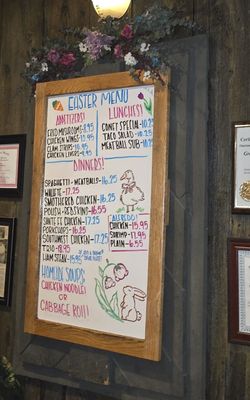 EASTER MENU
APPETIZERS!
FRIED MUSHROOMS-8.95
CHICKEN WINGS-12.95
CLAM STRIPS-10.95
CHICKEN LIVERS-8.95
LUNCHES!
CONEY SPECIAL-10.25
TACO SALAD-10.25
MEATBALL SUB-10.25
DINNERS!
SPAGHETTI-MEATBALLS-16.25
WALLEYE-17.25
SMOTHERED CHICKEN-16.25
POLISH-REDSKINS-16.55
SANTE FE CHICKEN-17.25
PORKCHOPS-16.25
SOUTHWEST CHICKEN-17.25
TRIO-18.95
HAM STEAK-15.95
ALFREDO!
CHICKEN-15.95
SHRIMP-17.95
PLAIN-6.55
HOMADE SOUPS!
CHICKEN NOODLE
OR
CABBAGE ROLL!